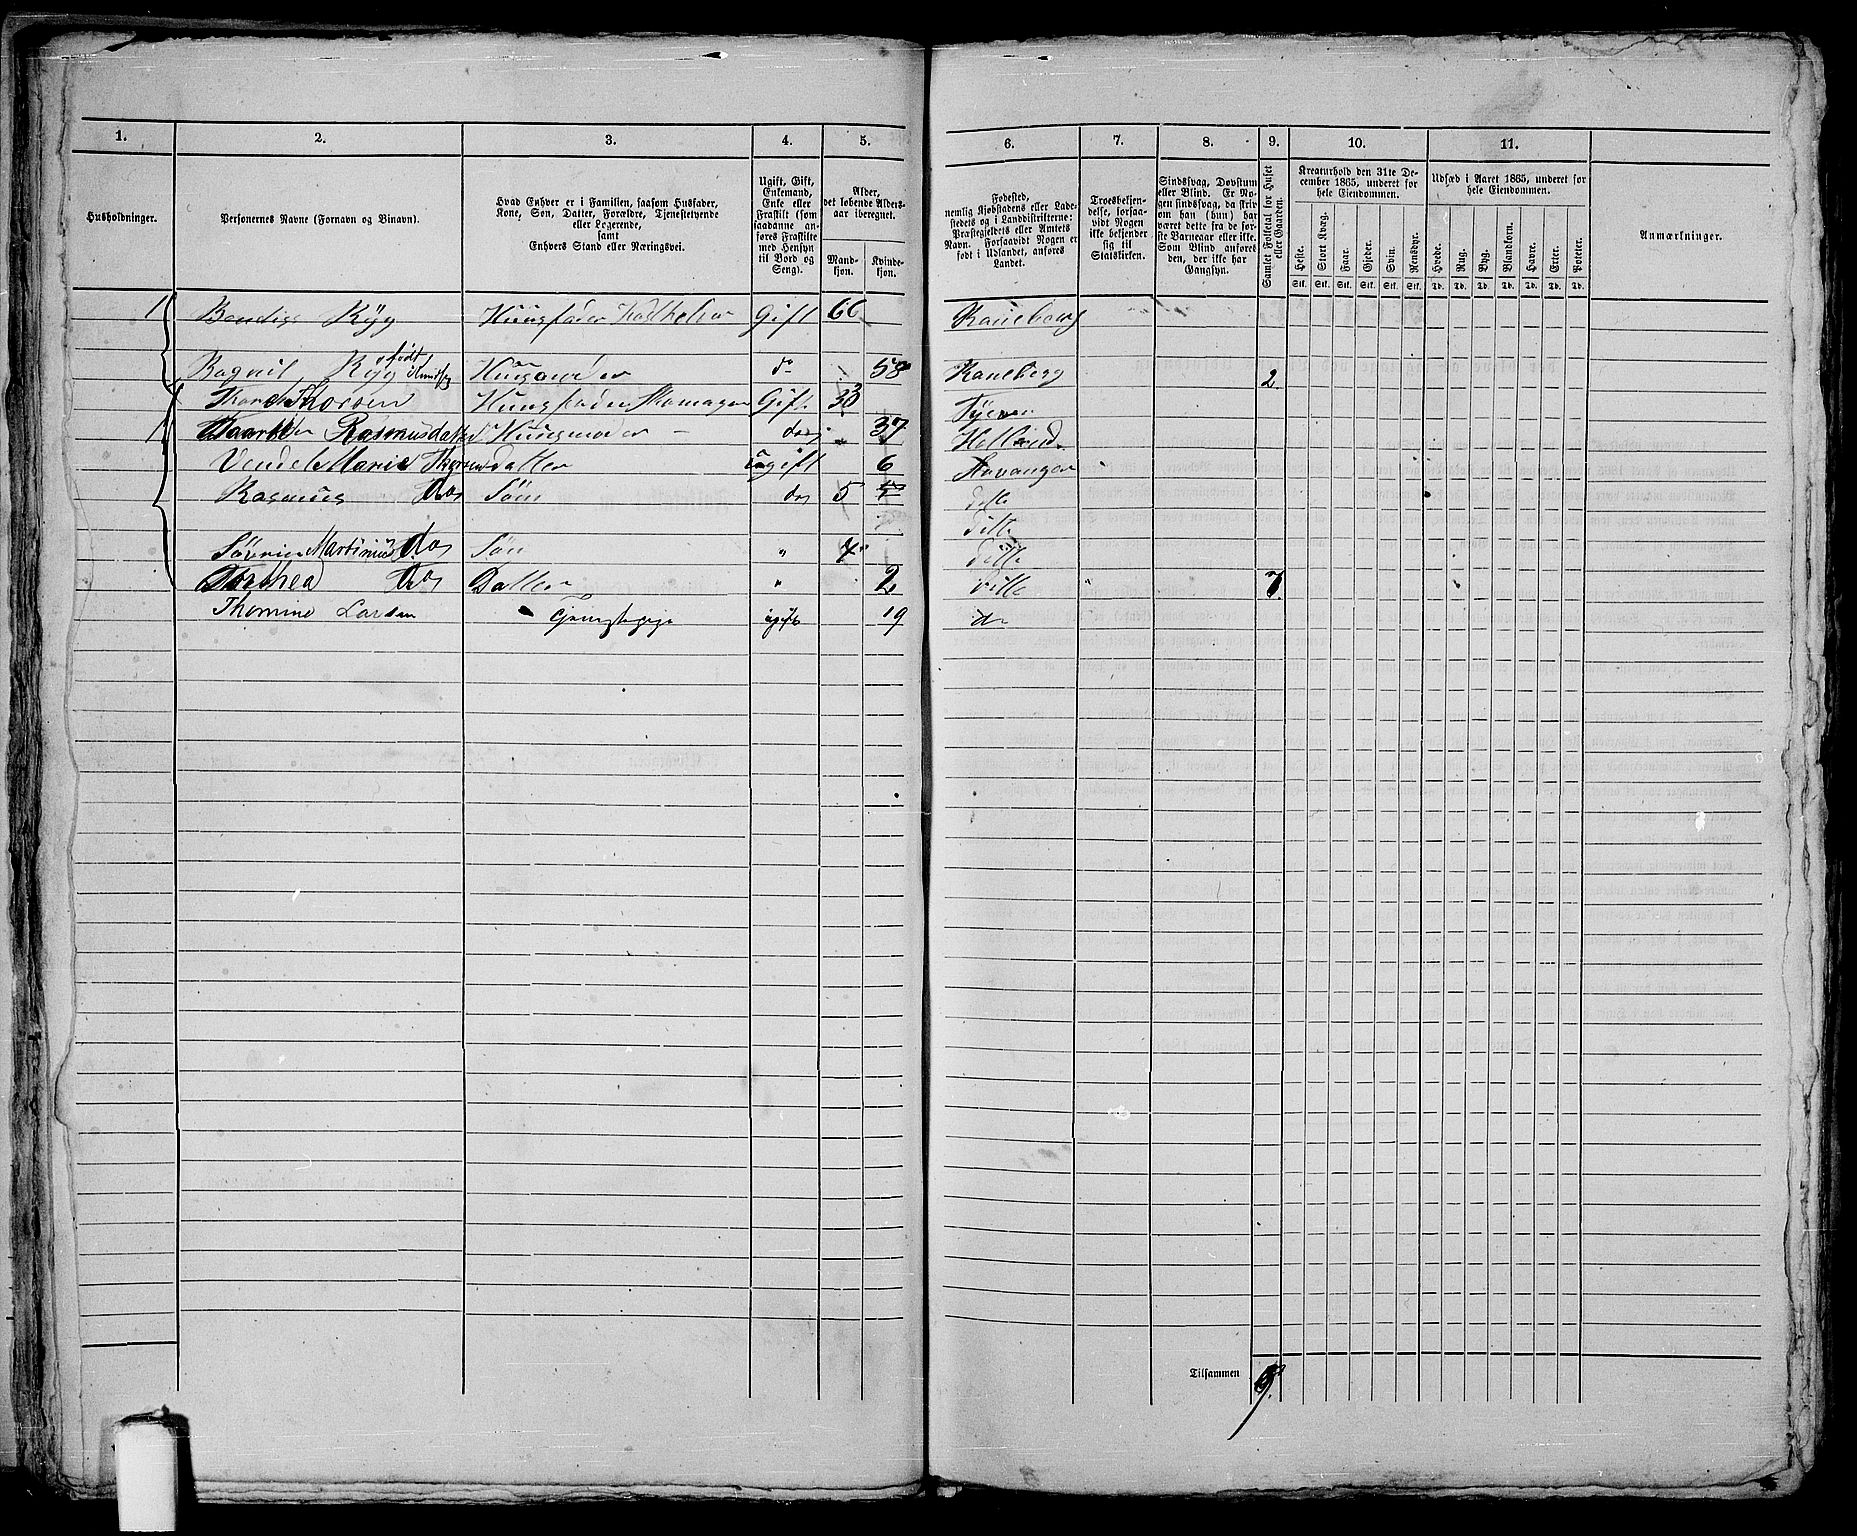 1. 2. 3. 4. 5. 6. 7. 8. 9. 10. 11.
Husholdninger.
Personernes Navne (Fornavn og Binavn).
Hvad Enhver er i Familien, saasom Husfader,
Kone, Søn, Datter, Forældre, Tjenestetyende
eller Logerende,
samt
Enhvers Stand eller Næringsvei.
Ugift, Gift,
Enkemand,
Enke eller
Fraskilt (som
saadanne an-
føres Fraskilte
med Hensyn
til Bord og
Seng).
Alder,
det løbende Alders-
aar iberegnet.
Mand-
kjøn.
Kvinde-
kjøn.
Fødested,
nemlig Kjøbstadens eller Lade-
stedets og i Landdistrikterne:
Præstegjeldets eller Amtets
Navn. Forsaavidt Nogen er
født i Udlandet, anføres
Landet.
Troesbekjen-
delse, forsaa-
vidt Nogen
ikke bekjender
sig til
Statskirken.
Sindssvag, Døvstum
eller Blind. Er No-
gen sindssvag, da skriv
om han (hun) har
været dette fra de før-
ste Barneaar eller ikke.
Som Blind anføres
den, der ikke har
Gangsyn.
Samlet Folketal for Huset
eller Gaarden.
Kreaturhold den 31te De-
cember 1865, underet for
hele Eiendommen.
Heste. Stort Kvæg. Faar. Gjeder. Svin. Rensdyr.
Stk. Stk. Stk. Stk. Stk. Stk.
Udsæd i Aaret 1865, underet for
hele Eiendommen.
Hvede. Rug. Byg. Blandkorn. Havre. Erter. Poteter.
Td. Td. Td. Td. Td. Td. Td.
Anmærkninger.
1 Bendigs Ryg Huusfader Gift 66 Raneberg
født
Ragnil Ryg Huusmoder do 58 Raneberg 2
Thorsen Huusfader Skomager Gift
1 Rasmusdatter Huusmoder do 37
Vendel Marie datter ugift 6 Stavanger
Rasmus do Søn do 5 ditte
ditte
Martinus do Søn " 4 ditte
Dorthea do Datter " 2 ditte " 7
Thomine Larsen Tjenestepige ugift 19 do
Tilsammen 9.